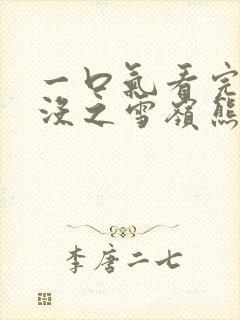 一口氣看完
沒之雪嶺熊
李唐二七